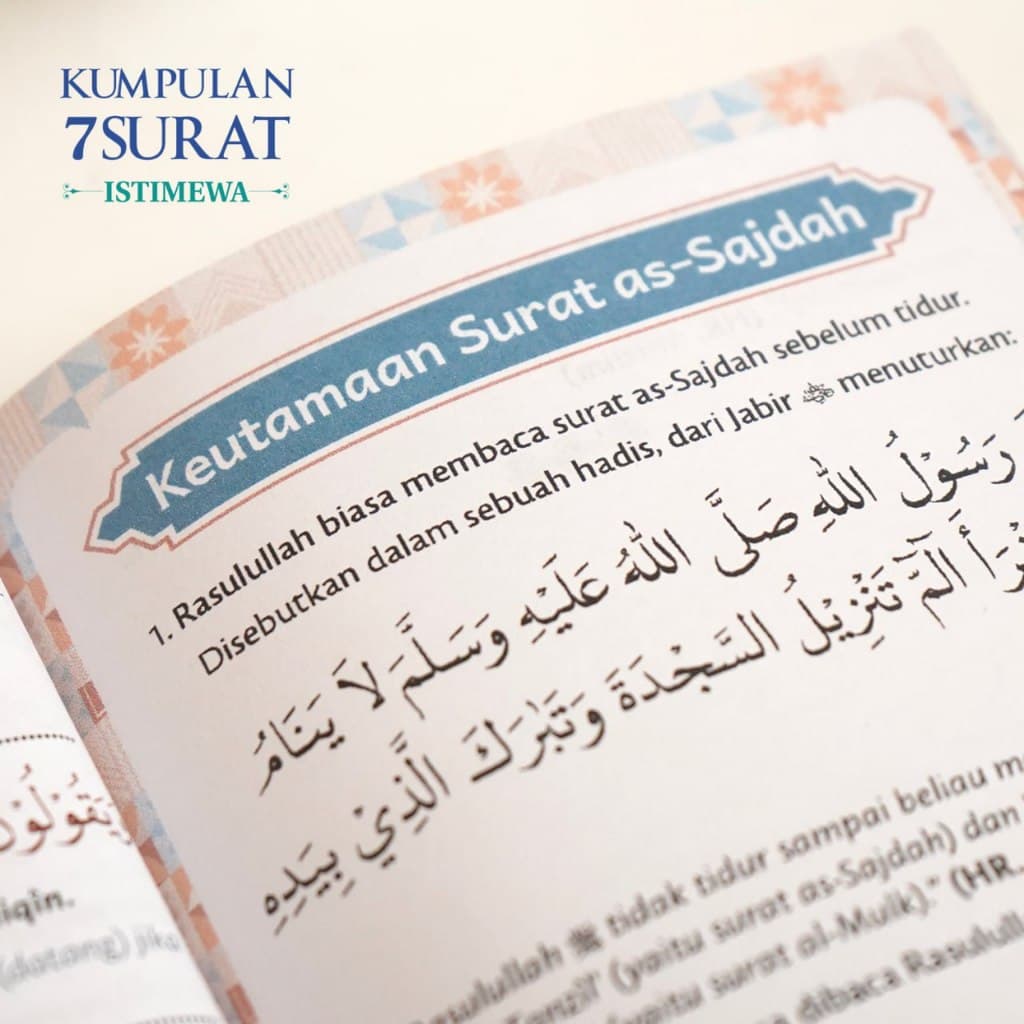 KUMPULAN
7SURAT
ISTIMEWA
Keutamaan Surat as-Sajdah
1. Rasulullah biasa membaca surat as-Sajdah sebelum tidur.
Disebutkan dalam sebuah hadis, dari Jabir menuturkan:
رَسُوْلُ اللهِ صَلَّى اللهُ عَلَيْهِ وَسَلَّمَ لَا يَنَامُ
الٓمّٓ تَنْزِيْلُ السَّجْدَةَ وَتَبٰرَكَ الَّذِيْ بِيَدِهِ
ﷺ tidak tidur sampai beliau
(yaitu surat as-Sajdah) dan
surat al-Mulk)." (HR.
dibaca
يَقُوْلُوْنَ
(datang) jika